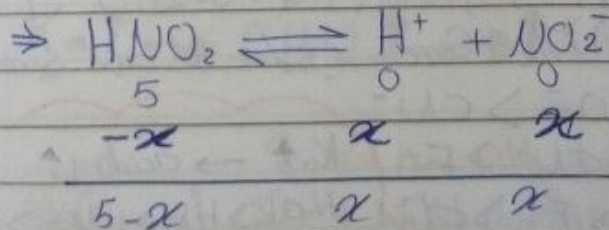 ⇒ HNO₂ ⇌ H⁺ + NO₂⁻
5 0 0
-x x x
5-x x x